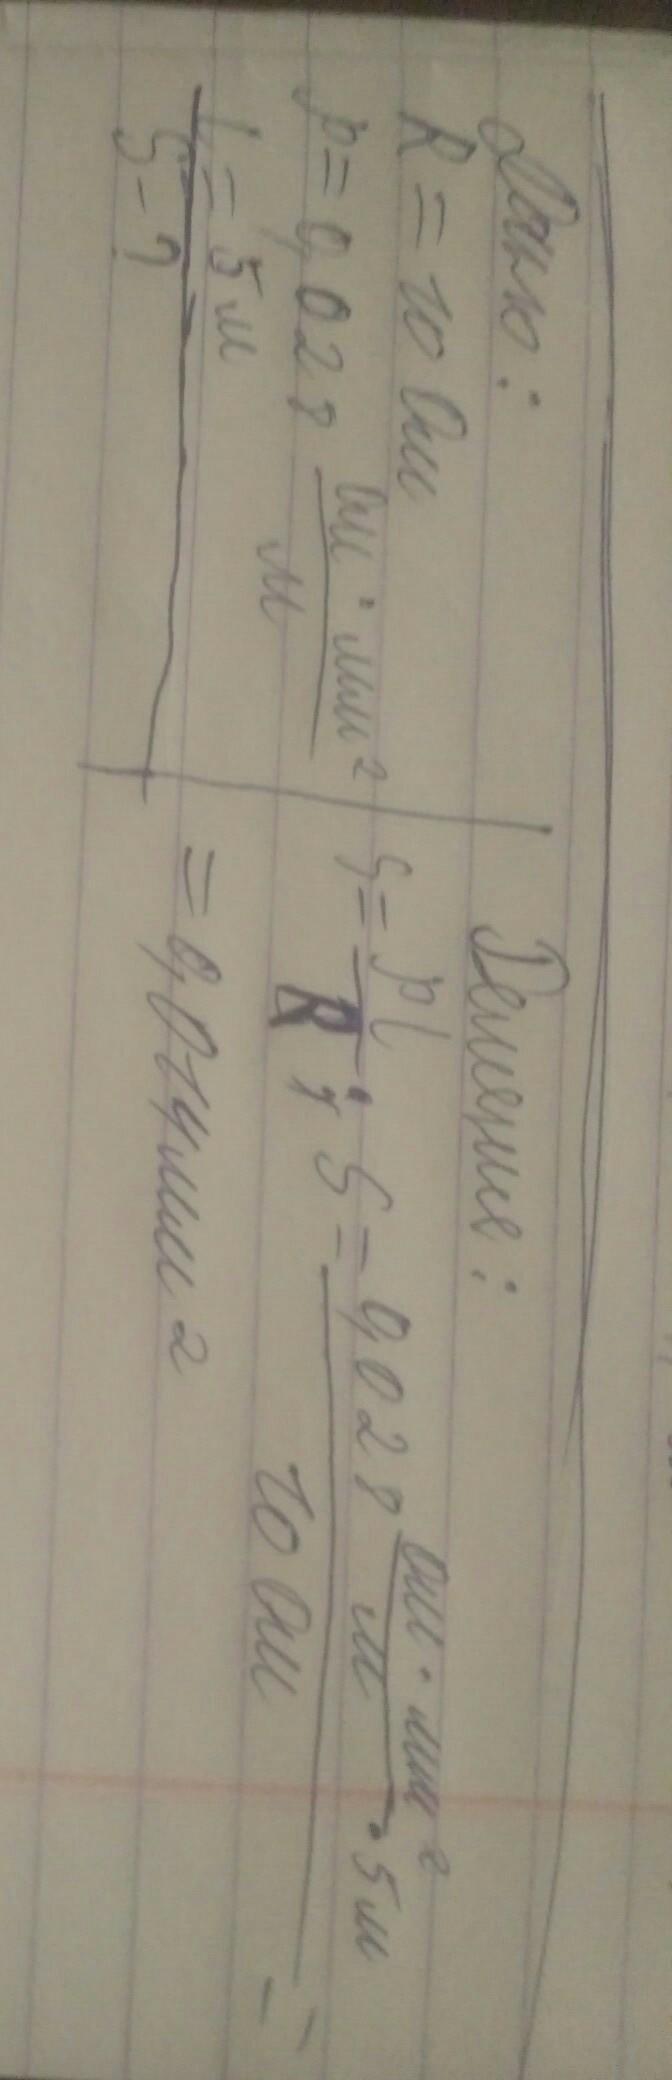 Дано:
R = 10 Ом
ρ = 0,028 Ом · мм²
м
l = 5 м
S - ?
Решение:
S = ρl
R ; S = 0,028 Ом · мм²
м · 5 м
10 Ом =
= 0,014 мм²